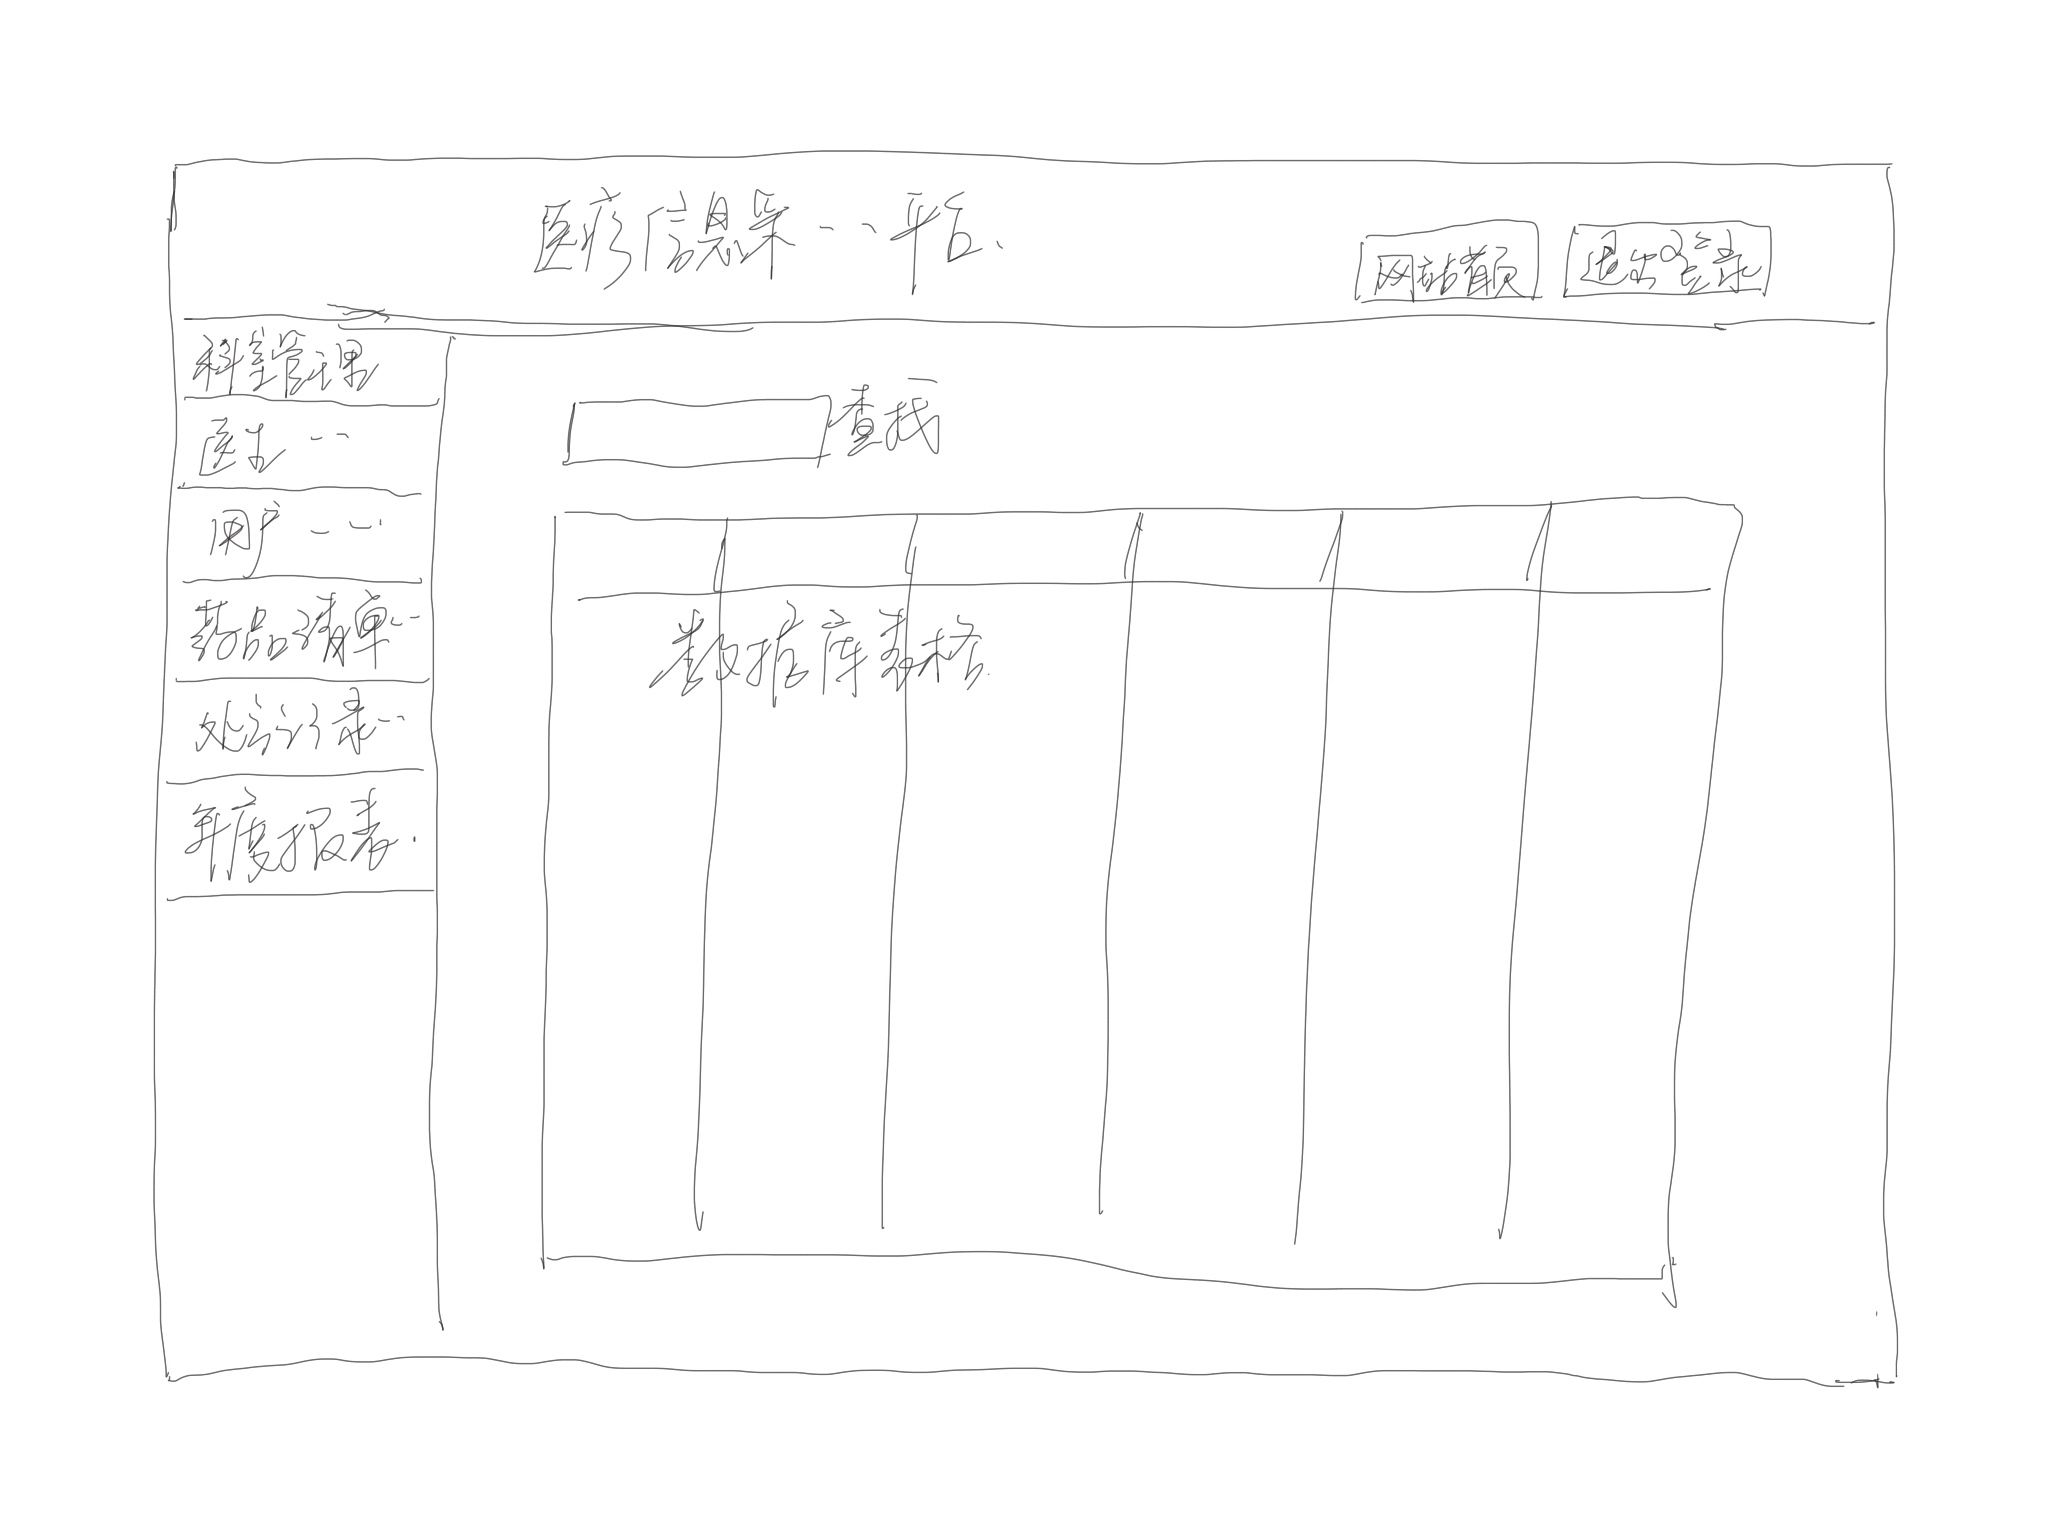 医疗信息采……平台.
网站首页
退出登录
科室管理
医生……
用户……
药品清单……
处方记录……
年度报表.
查找
数据库表格.